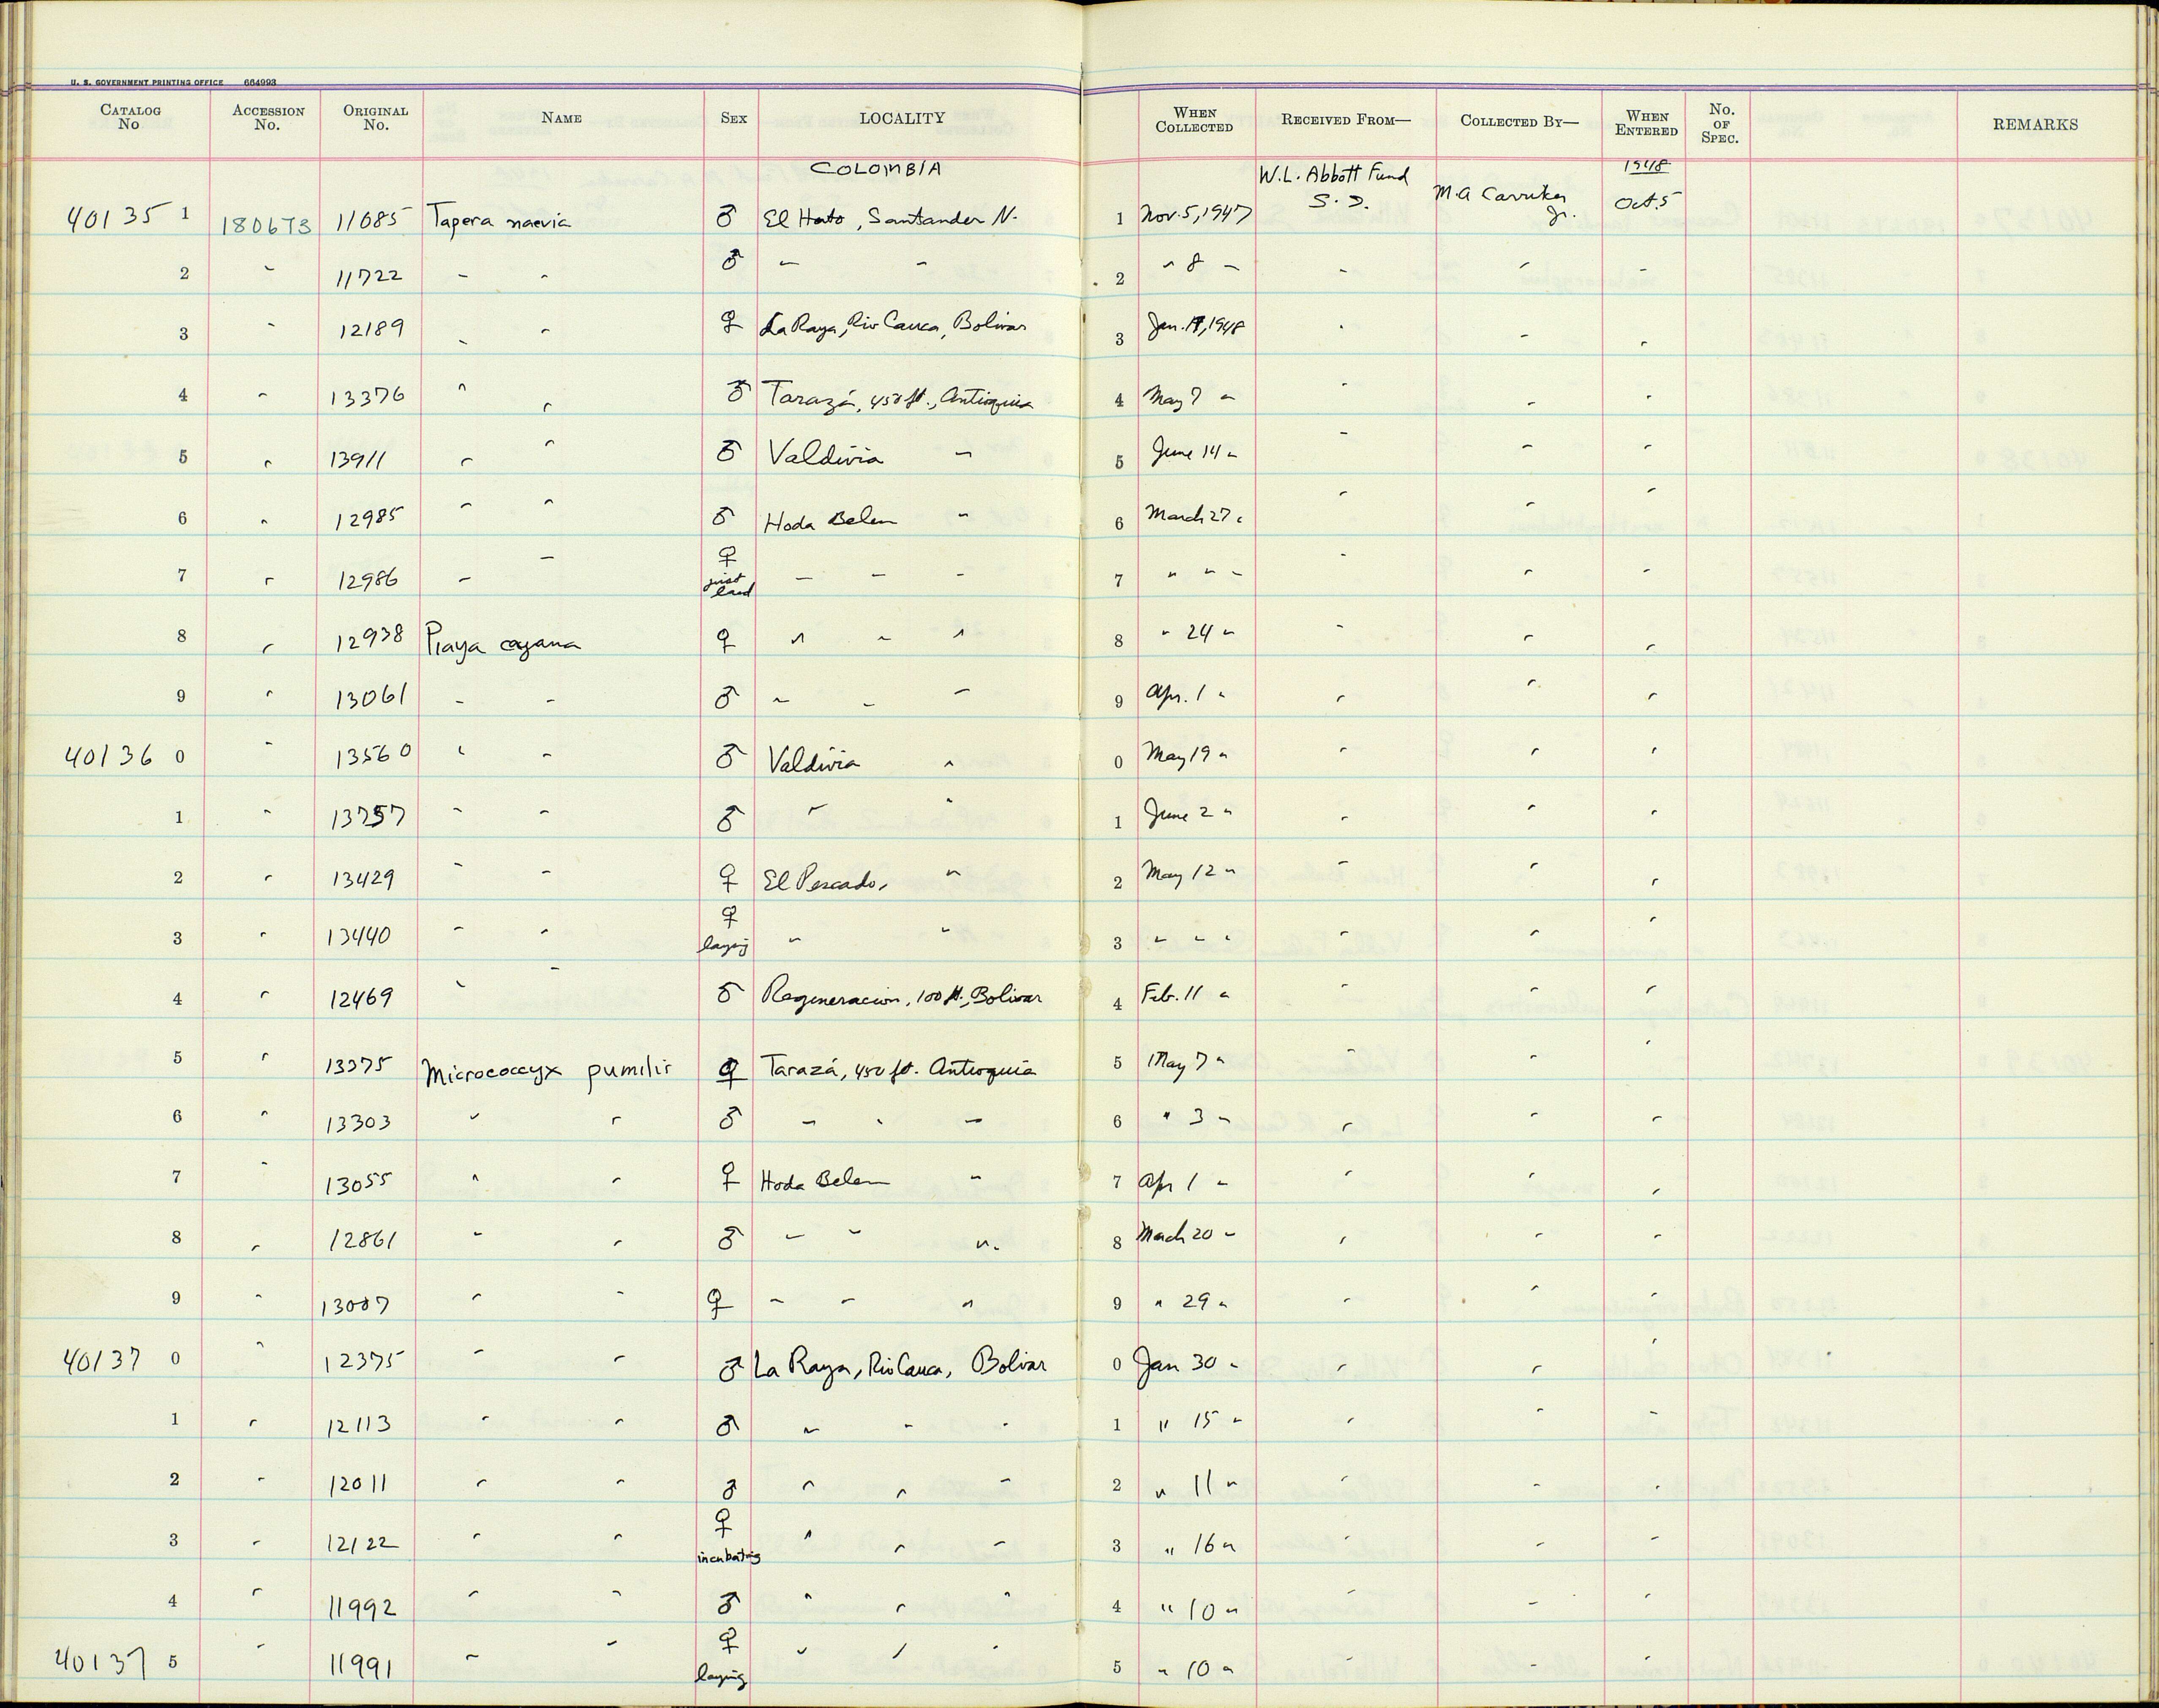 U. S. GOVERNMENT PRINTING OFFICE 664993
CATALOG No ACCESSION No. ORIGINAL No. NAME SEX LOCALITY WHEN COLLECTED RECEIVED FROM— COLLECTED BY— WHEN ENTERED No. OF SPEC. REMARKS
COLOMBIA 1948
40135 1 180673 11685 Tapera naevia ♂ El Hato, Santander N. 1 Nov. 5, 1947 W.L. Abbott Fund S. I. M.A. Carriker Jr. Oct. 5
2 " 11722 " " ♂ " " 2 " 8 " " " "
3 " 12189 " " ♀ La Raya, Rio Cauca, Bolivar 3 Jan. 17, 1948 " " "
4 " 13376 " " ♂ Tarazá, 450 ft., Antioquia 4 May 7 " " " "
5 " 13911 " " ♂ Valdivia " 5 June 14 " " " "
6 " 12985 " " ♂ Hoda Belen " 6 March 27 " " " "
7 " 12986 " " ♀ just laid " " " 7 " " " " " "
8 " 12938 Piaya cayana ♀ " " " 8 " 24 " " " "
9 " 13061 " " ♂ " " " 9 Apr. 1 " " " "
40136 0 " 13560 " " ♂ Valdivia " 0 May 19 " " " "
1 " 13757 " " ♂ " " 1 June 2 " " " "
2 " 13429 " " ♀ El Pescado, " 2 May 12 " " " "
3 " 13440 " " ♀ laying " " 3 " " " " " "
4 " 12469 " " ♂ Regeneracion, 100 ft., Bolivar 4 Feb. 11 " " " "
5 " 13375 Micrococcyx pumilis ♀ Tarazá, 450 ft. Antioquia 5 May 7 " " " "
6 " 13303 " " ♂ " " " 6 " 3 " " " "
7 " 13055 " " ♀ Hoda Belen " 7 Apr 1 " " " "
8 " 12861 " " ♂ " " " 8 March 20 " " " "
9 " 13007 " " ♀ " " " 9 " 29 " " " "
40137 0 " 12375 " " ♂ La Raya, Rio Cauca, Bolivar 0 Jan 30 " " " "
1 " 12113 " " ♂ " " " 1 " 15 " " " "
2 " 12011 " " ♂ " " " 2 " 11 " " " "
3 " 12122 " " ♀ incubating " " " 3 " 16 " " " "
4 " 11992 " " ♂ " " " 4 " 10 " " " "
40137 5 " 11991 " " ♀ laying " " " 5 " 10 " " " "